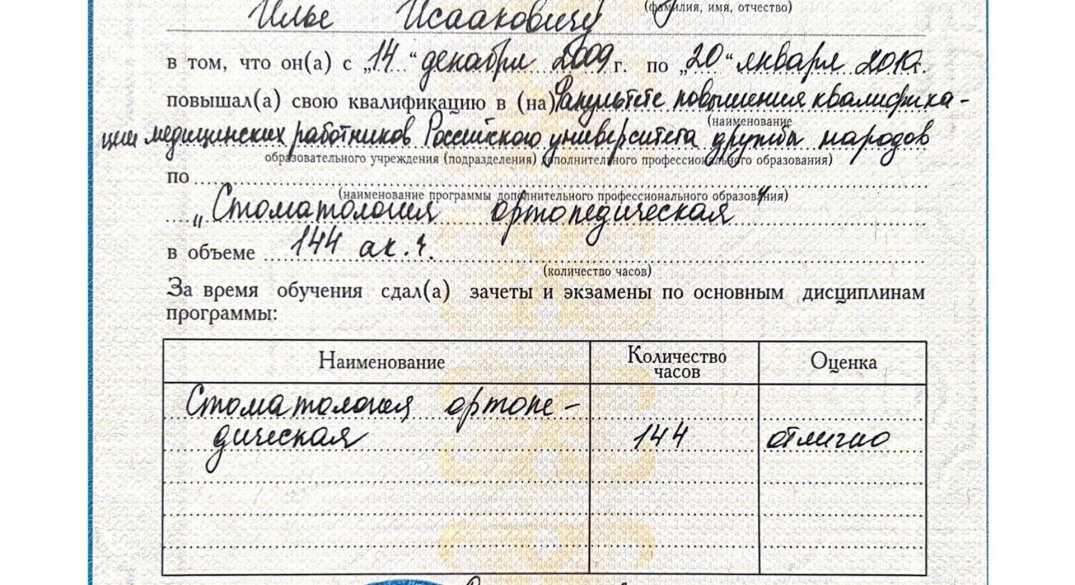 (фамилия, имя, отчество)
Илье Исааковичу
в том, что он(а) с „14“ декабря 2009 г. по „20“ января 2010 г.
повышал(а) свою квалификацию в (на) Факультете повышения квалифика-
(наименование
ции медицинских работников Российского университета дружбы народов
образовательного учреждения (подразделения) дополнительного профессионального образования)
по
(наименование программы дополнительного профессионального образования)
„Стоматология ортопедическая“
в объеме 144 ак.ч.
(количество часов)
За время обучения сдал(а) зачеты и экзамены по основным дисциплинам
программы:
Наименование Количество часов Оценка
Стоматология ортопе-
дическая 144 отлично